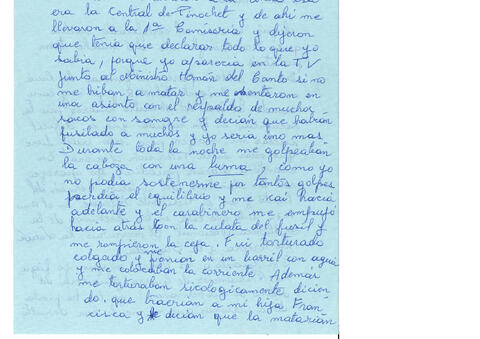 era la Central de Pinochet y de ahi me
llevaron a la 1ª Comiseria y dijeron
que tenia que declarar todo lo que yo
sabia, porque yo aparecia en la T.V
junto al Ministro Hernán del Canto si no
me hiban a matar y me sentaron en
una asiento con el respaldo de muchos
sacos con sangre y decian que habian
fusilado a muchos y yo seria uno mas
Durante toda la noche me golpeaban
la cabeza con una luma y como yo
no podia sostenerme por tantos golpes
perdia el equilibrio y me cai hacia
adelante y el carabinero me empujó
hacia atras con la culata del fusil y
me rompieron la ceja. Fui torturado
colgado y me ponian en un barril con agua
y me colocaban la corriente. Ademas
me torturaban sicologicamente dicien
do. que hacrian a mi hija Fran
cisca y decian que la matarian